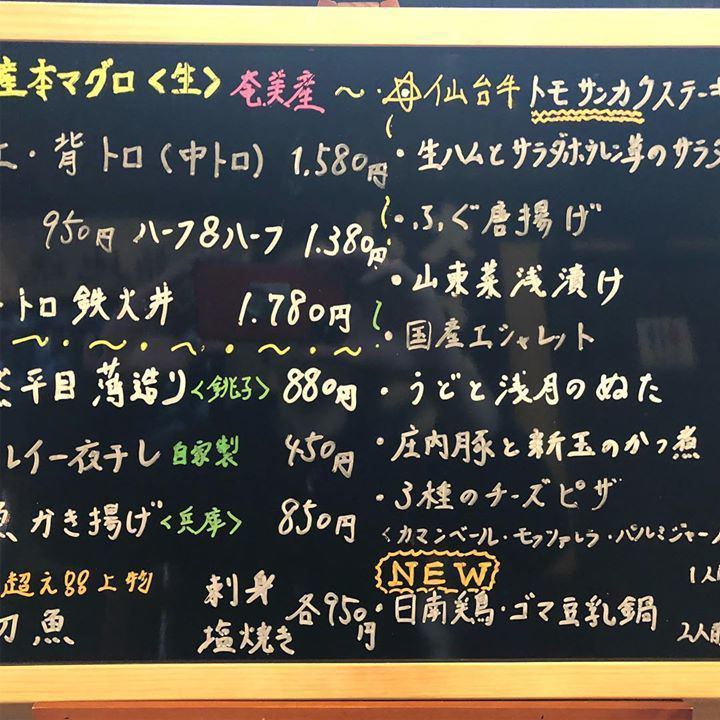 産本マグロ〈生〉奄美産
・背トロ(中トロ) 1.580円
950円 ハーフ&ハーフ 1.380円
トロ 鉄火丼 1.780円
平目 薄造り〈銚子〉 880円
ルイ一夜干し 自家製 450円
魚 かき揚げ〈兵庫〉 850円
超え88上物
刀魚 刺身 塩焼き 各950円
・仙台牛 トモサンカクステーキ
・生ハムとサラダホウレン草のサラダ
・ふぐ唐揚げ
・山東菜浅漬け
・国産エシャレット
・うどと浅月のぬた
・庄内豚と新玉のかつ煮
・3種のチーズピザ
〈カマンベール・モッツァレラ・パルミジャーノ
NEW 1人
・日南鶏・ゴマ豆乳鍋 2人前